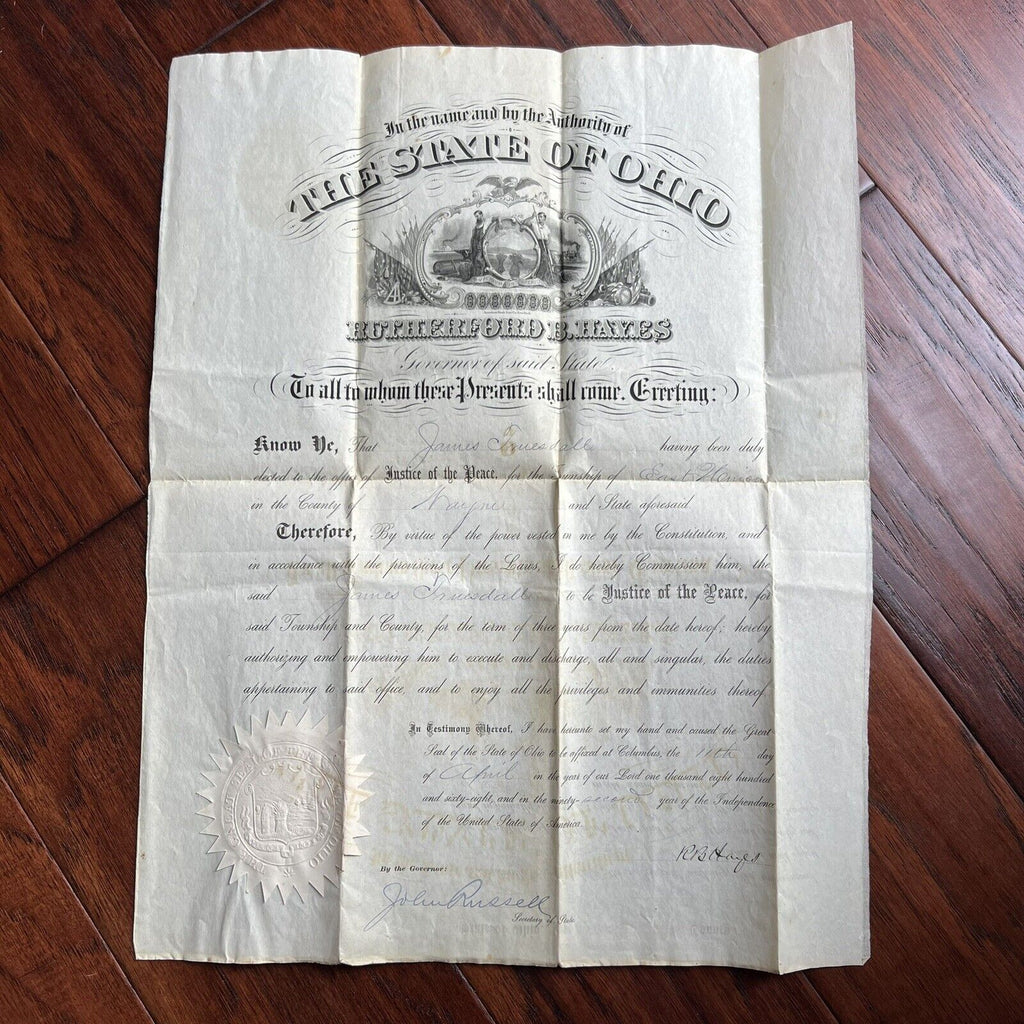 In the name and by the Authority of
THE STATE OF OHIO
RUTHERFORD B. HAYES
Governor of said State
To all to whom these Presents shall come, Greeting:
Know Ye, That James Truesdall having been duly
elected to the office of Justice of the Peace, for the Township of East Union
in the County of Wayne and State aforesaid.
Therefore, By virtue of the power vested in me by the Constitution, and
in accordance with the provisions of the Laws, I do hereby Commission him, the
said James Truesdall to be Justice of the Peace, for
said Township and County, for the term of three years from the date hereof; hereby
authorizing and empowering him to execute and discharge, all and singular, the duties
appertaining to said office, and to enjoy all the privileges and immunities thereof.
In Testimony Whereof, I have hereunto set my hand, and caused the Great
Seal of the State of Ohio to be affixed at Columbus, the 11th day
of April in the year of our Lord one thousand eight hundred
and sixty-eight, and in the ninety-second year of the Independence
of the United States of America.
RBHayes
By the Governor:
John Russell
Secretary of State
THE GREAT SEAL OF THE STATE OF OHIO